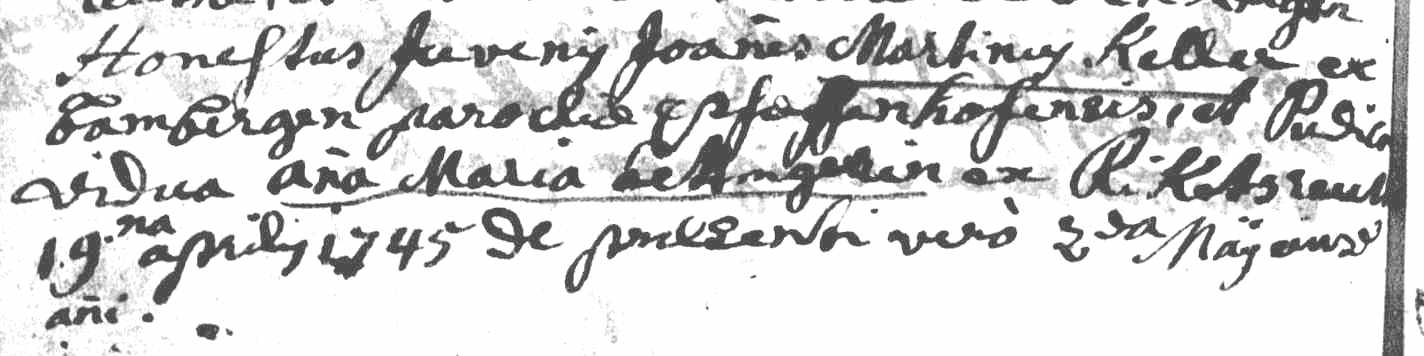 Honestus Juvenis Joañes Martinus Keller ex
Bambergen parochiae Pfaffenhofensis, et Pudica
vidua Aña Maria ex Rikertsreuth
19.na aprilis 1745 De praesenti verò 2da Maÿ eiusd
añi.